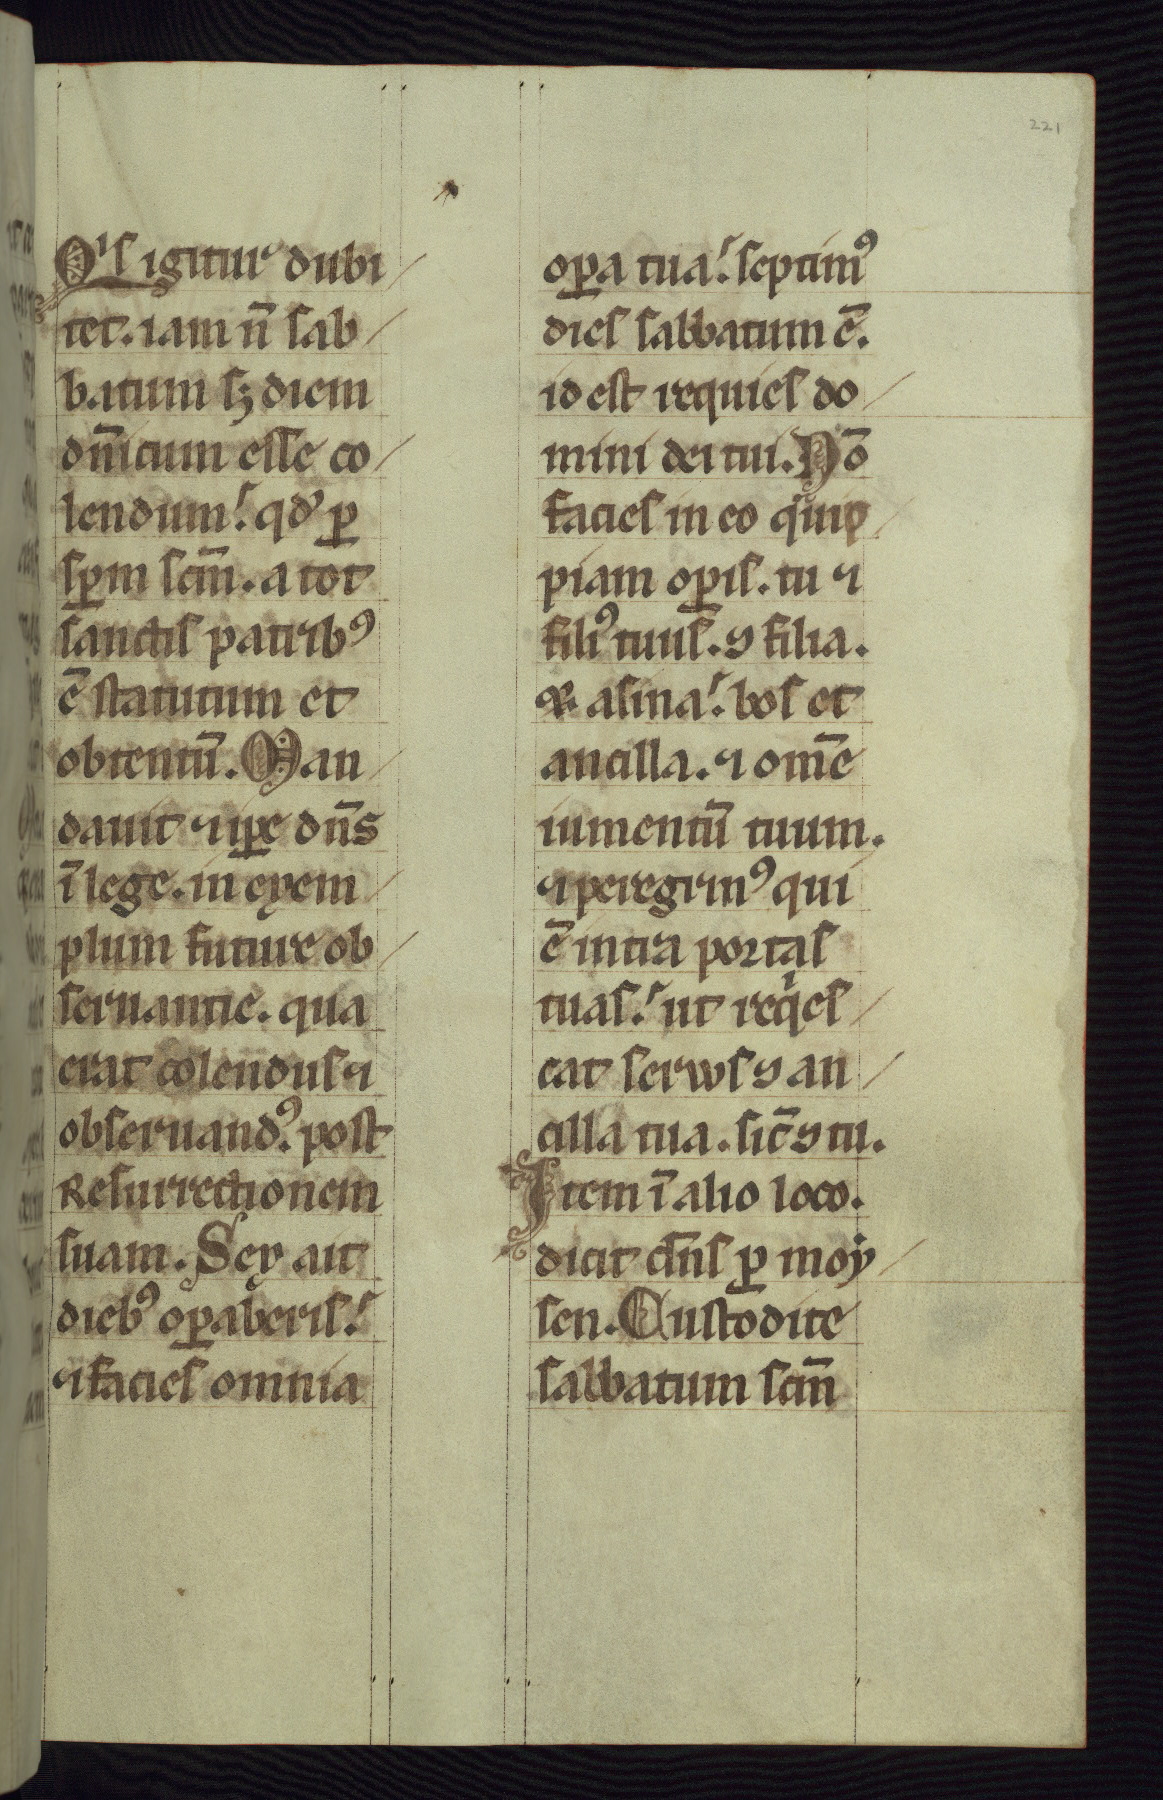 221
Qis igitur dubi
tet. iam n̄ sab
batum sꝫ diem
dn̄icum esse co
lendum. qd' ꝑ
sp̄m scm̄. a tot
sanctis patribꝯ
ē statutum et
obtentū. Man
dauit ⁊ ip̄e dn̄s
ī lege. in exem
plum future ob
seruantie. qua
erat colendus ⁊
obseruandꝯ. post
Resurrectionem
suam. Sex ait
diebꝯ oꝑaberis.
⁊ facies omnia
oꝑa tua. septimꝯ
dies sabbatum ē.
id est requies do
mini dei tui. Nō
facies in eo quip
piam oꝑis. tu ⁊
filiꝯ tuus. ꝯ filia.
⁊ asina. bos et
ancilla. ⁊ om̄e
iumentū tuum.
⁊ peregrinꝯ qui
ē intra portas
tuas. ut reqⁱes
cat seruus ꝯ an
cilla tua. sic̄ ꝯ tu.
Item ī alio loco.
dicit dn̄s ꝑ moy
sen. Custodite
sabbatum scm̄